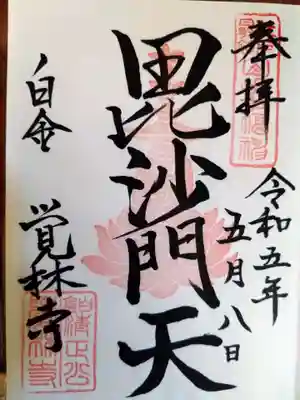 奉拝
令和五年
五月八日
毘沙門天
白金
覚林寺